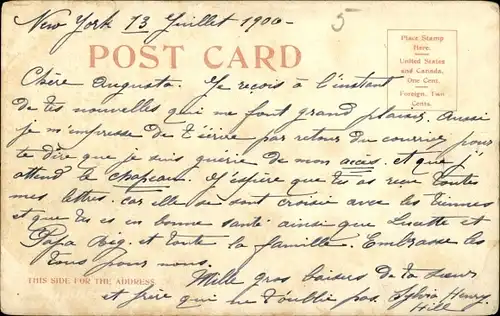 New York 13 Juillet 1906-
5
POST CARD
Place Stamp
Here.
United States
and Canada,
One Cent.
Foreign, Two
Cents.
Chère Augusta. Je reçois à l'instant
de tes nouvelles qui me font grand plaisir. Aussi
je m'empresse de t'écrire par retour du courrier pour
te dire que je suis guérie de mon accès. et que j'
attend le chapeau. J'espère que tu as reçu toutes
mes lettres. car elle se sont croisée avec les tiennes
et que tu es en bonne santé ainsi que Lucette et
Papa Big. et toute la famille. Embrasse les
tous pour nous.
THIS SIDE FOR THE ADDRESS
Mille gros baisers de ta Sœur
et frère qui ne t'oublie pas. Sylvia Henry
Hill